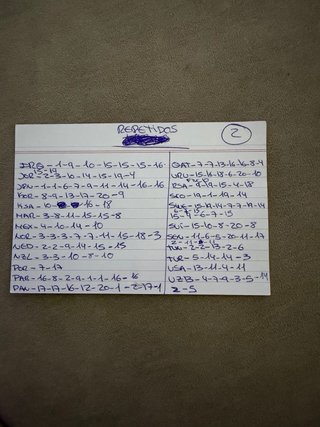 REPETIDOS
2
IRQ - 1-9-10-15-15-15-16-
13-19
JOR - 2-3-10-14-15-19-4
JPN - 1-1-6-7-9-11-14-16-16
KOR - 8-9-13-17-20-9
KSA - 10-16-18
MAR - 3-8-11-15-15-8
MEX - 4-10-14-10
NOR - 3-3-3-7-7-11-15-18-3
NED - 2-2-9-14-15-15
NZL - 3-3-10-8-10
POR - 7-17
PAR - 16-8-2-9-1-1-16-16
PAN - 17-17-16-12-20-1-2-17-1
QAT - 7-7-13-16-16-8-4
URU - 15-14-18-6-20-10
RSA - 9-19-15-4-18
SCO - 19-1-19-14
SWE - 15-19-14-7-7-9-14
15-6-7-15
SUI - 15-10-8-20-8
SEN - 11-6-5-20-11-17
2-11-15
TUN - 2-2-13-2-6
TUR - 5-14-14-3
USA - 13-11-4-11
UZB - 4-7-9-3-5-14
2-5